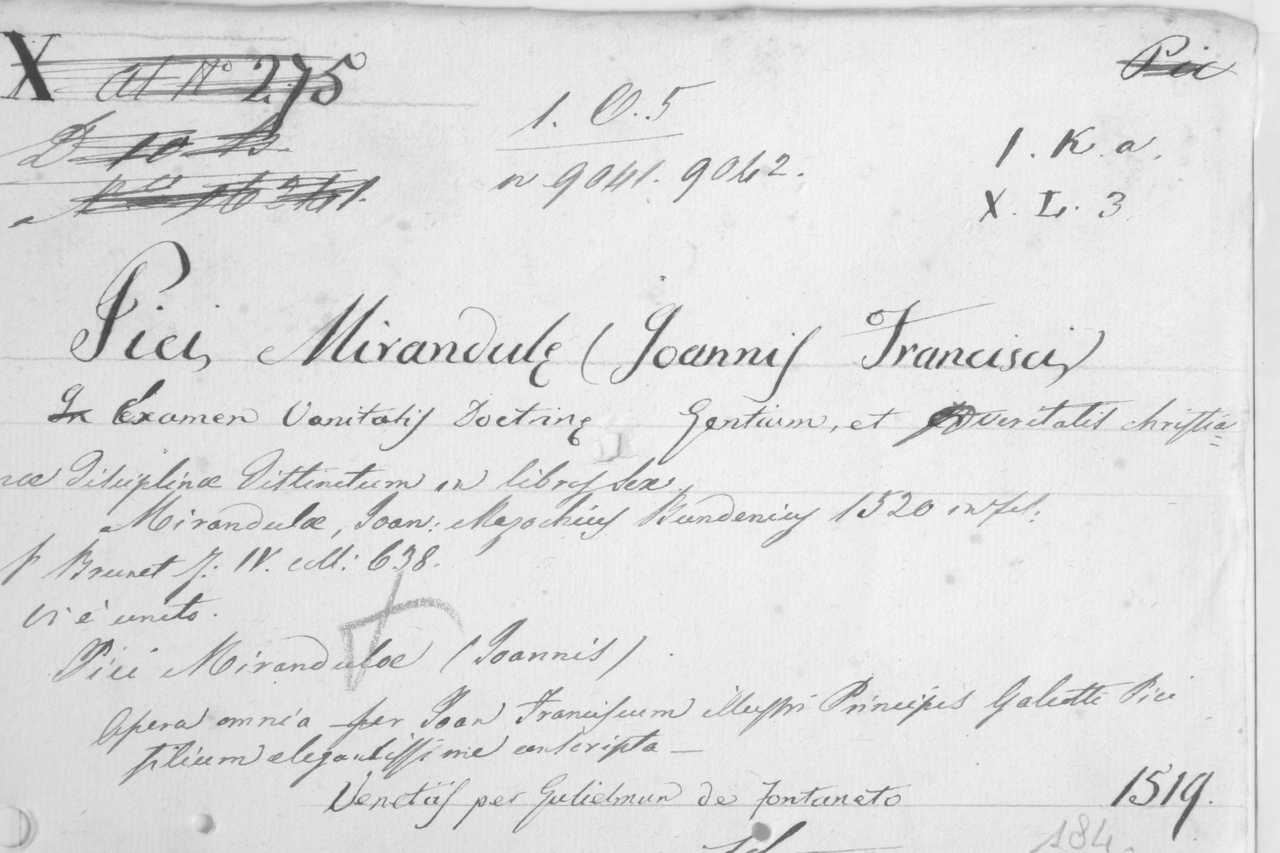 X at N° 275
Pic
D 10 B
1. O. 5
1. K. a.
n 9041. 9042.
X. L. 3
Pici Mirandulę (Joannis Francisci)
In Examen Vanitatis Doctrinę Gentium, et veritatis christia=
næ Disciplinæ Distinctum in libros sex
Mirandulæ, Joan: Mazochius Bundenius 1520 in fol:
Brunet T: IV. coll: 638.
Vi è unito.
Pici Mirandulæ (Joannis)
Opera omnia per Joan Franciscum illustri Principis Galeotti Pici
filium elegantissime conscripta —
Venetiis per Gulielmun de Fontaneto 1519.
184.